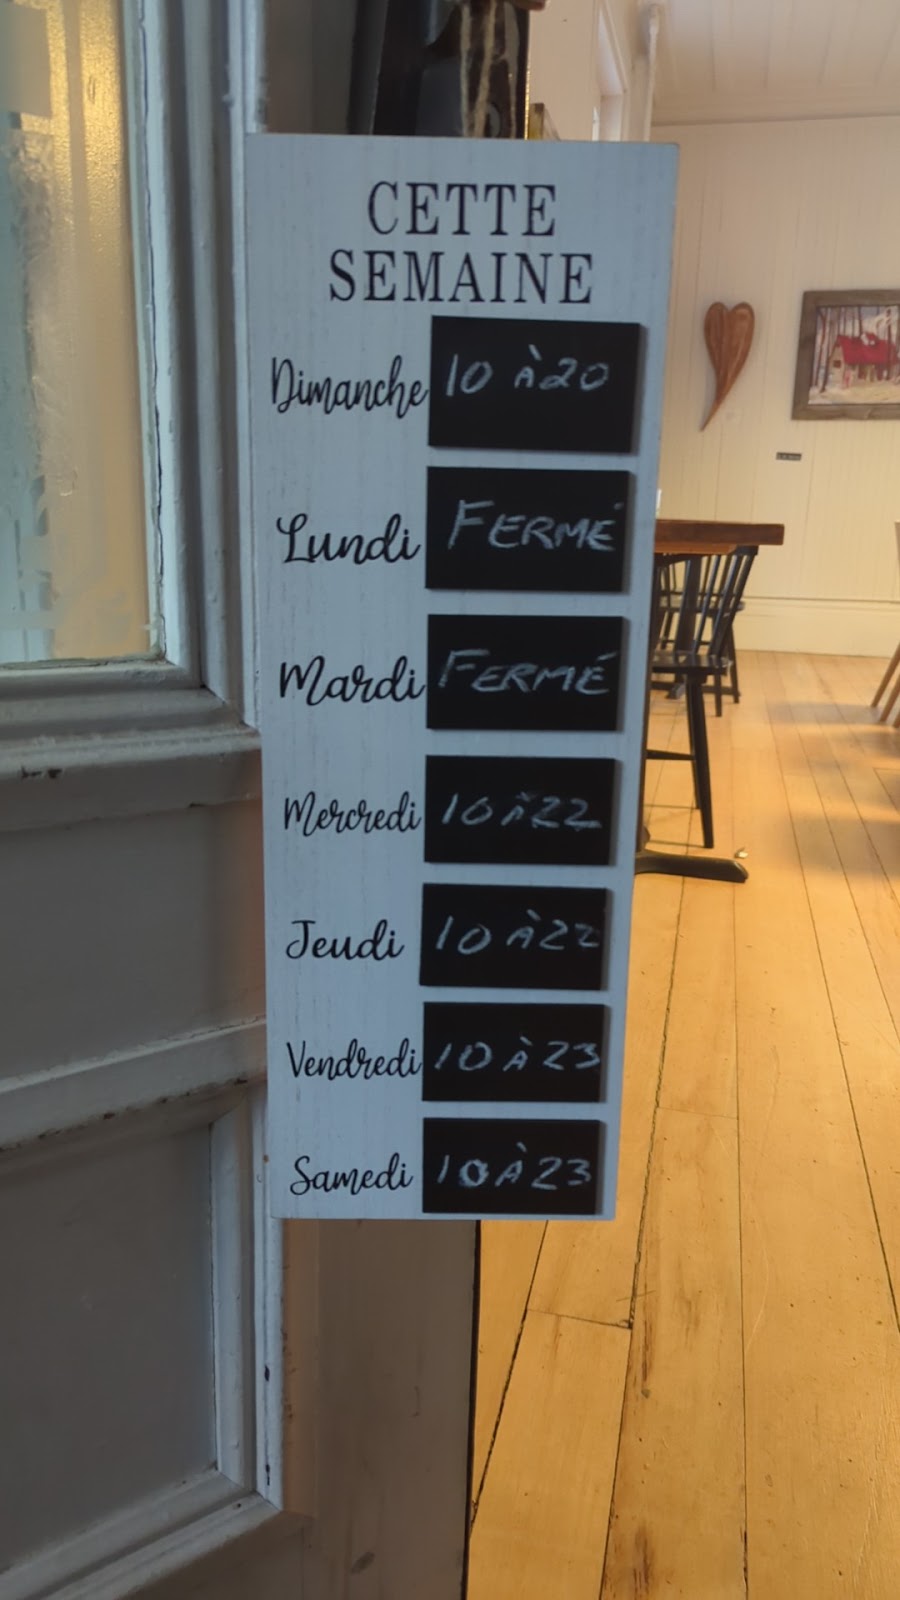 CETTE
SEMAINE
Dimanche 10 À 20
Lundi FERMÉ
Mardi FERMÉ
Mercredi 10 À 22
Jeudi 10 À 22
Vendredi 10 À 23
Samedi 10 À 23